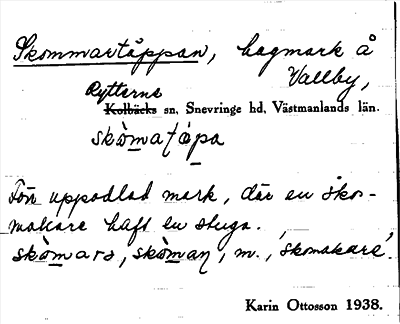 Skommartäppan, hagmark å
Vallby,
Rytterne
Kolbäcks sn, Snevringe hd, Västmanlands län.
skòmaṭápa
Förr uppodlad mark, där en sko-
makare haft en stuga.
skòmarə, skòmaṇ, m., 'skomakare'.
Karin Ottosson 1938.